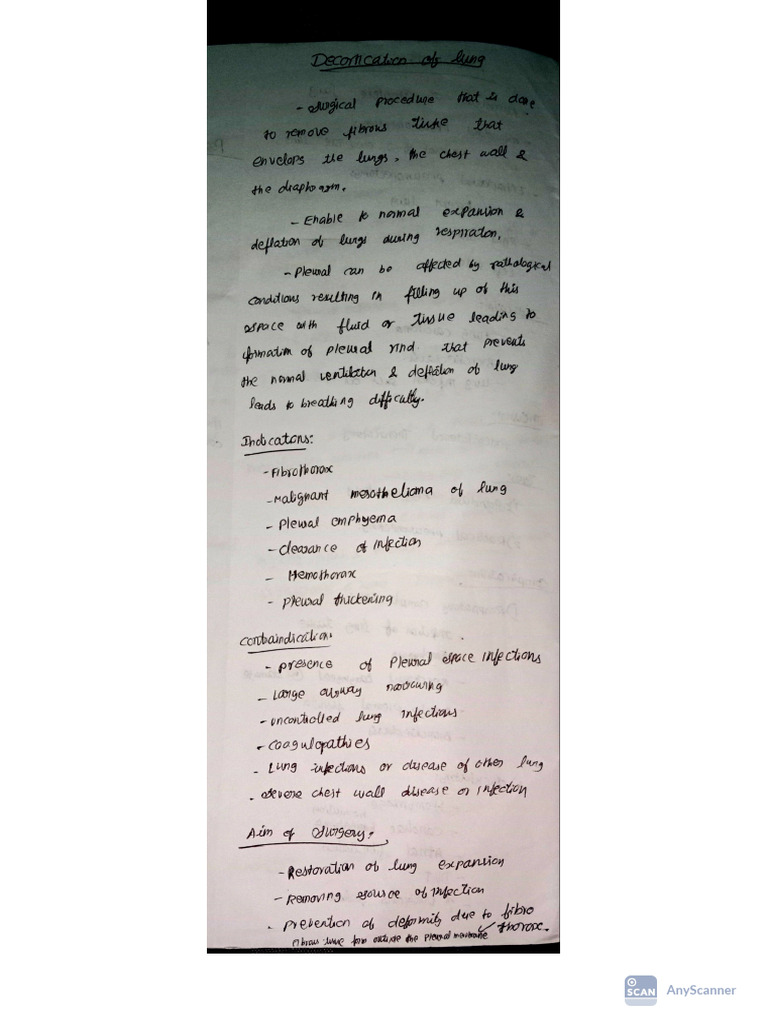 Decortication of lung
- surgical procedure that is done
to remove fibrous tissue that
envelops the lungs, the chest wall &
the diaphragm.
- Enable to normal expansion &
deflation of lungs during respiration.
- Pleural can be affected by pathological
conditions resulting in filling up of this
space with fluid or tissue leading to
formation of pleural rind that prevents
the normal ventilation & deflation of lung
leads to breathing difficulty.
Indications:
- Fibrothorax
- Malignant mesothelioma of lung
- Pleural emphyema
- Clearance of infection
- Hemothorax
- Pleural thickening
Contraindication:
- presence of Pleural space infections
- Large airway narrowing
- uncontrolled lung infections
- Coagulopathies
- Lung infections or disease of other lung
- severe chest wall disease or infection
Aim of Surgery:
- Restoration of lung expansion
- Removing source of infection
- prevention of deformity due to fibro
thorax.
Fibrous tissue form outside the pleural membrane
SCAN AnyScanner